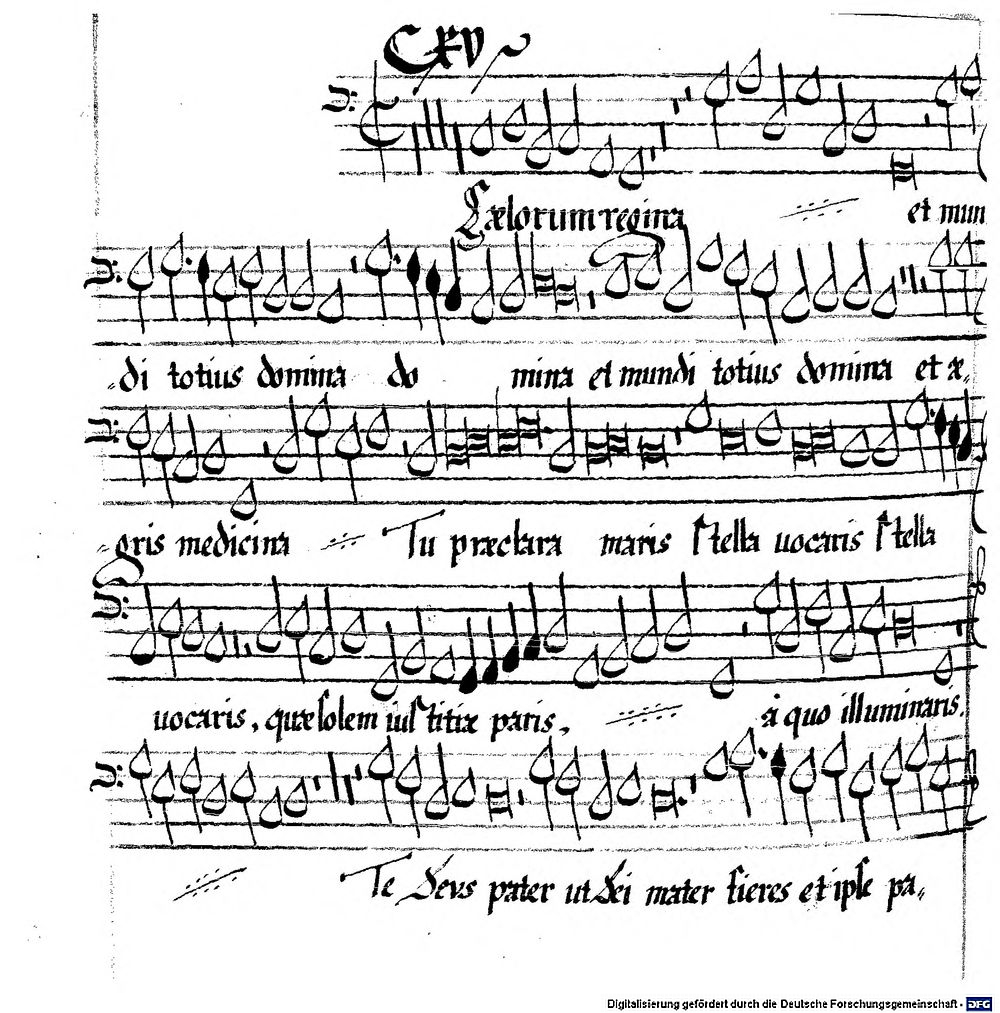 CXV
Cælorum regina et mun
di totius domina do mina et mundi totius domina et æ,,
gris medicina Tu præclara maris stella uocaris stella
uocaris, quæ solem iustitiæ paris, à quo illuminaris.
Te Deus pater ut Dei mater fieres et ipse pa,,
Digitalisierung gefördert durch die Deutsche Forschungsgemeinschaft - DFG